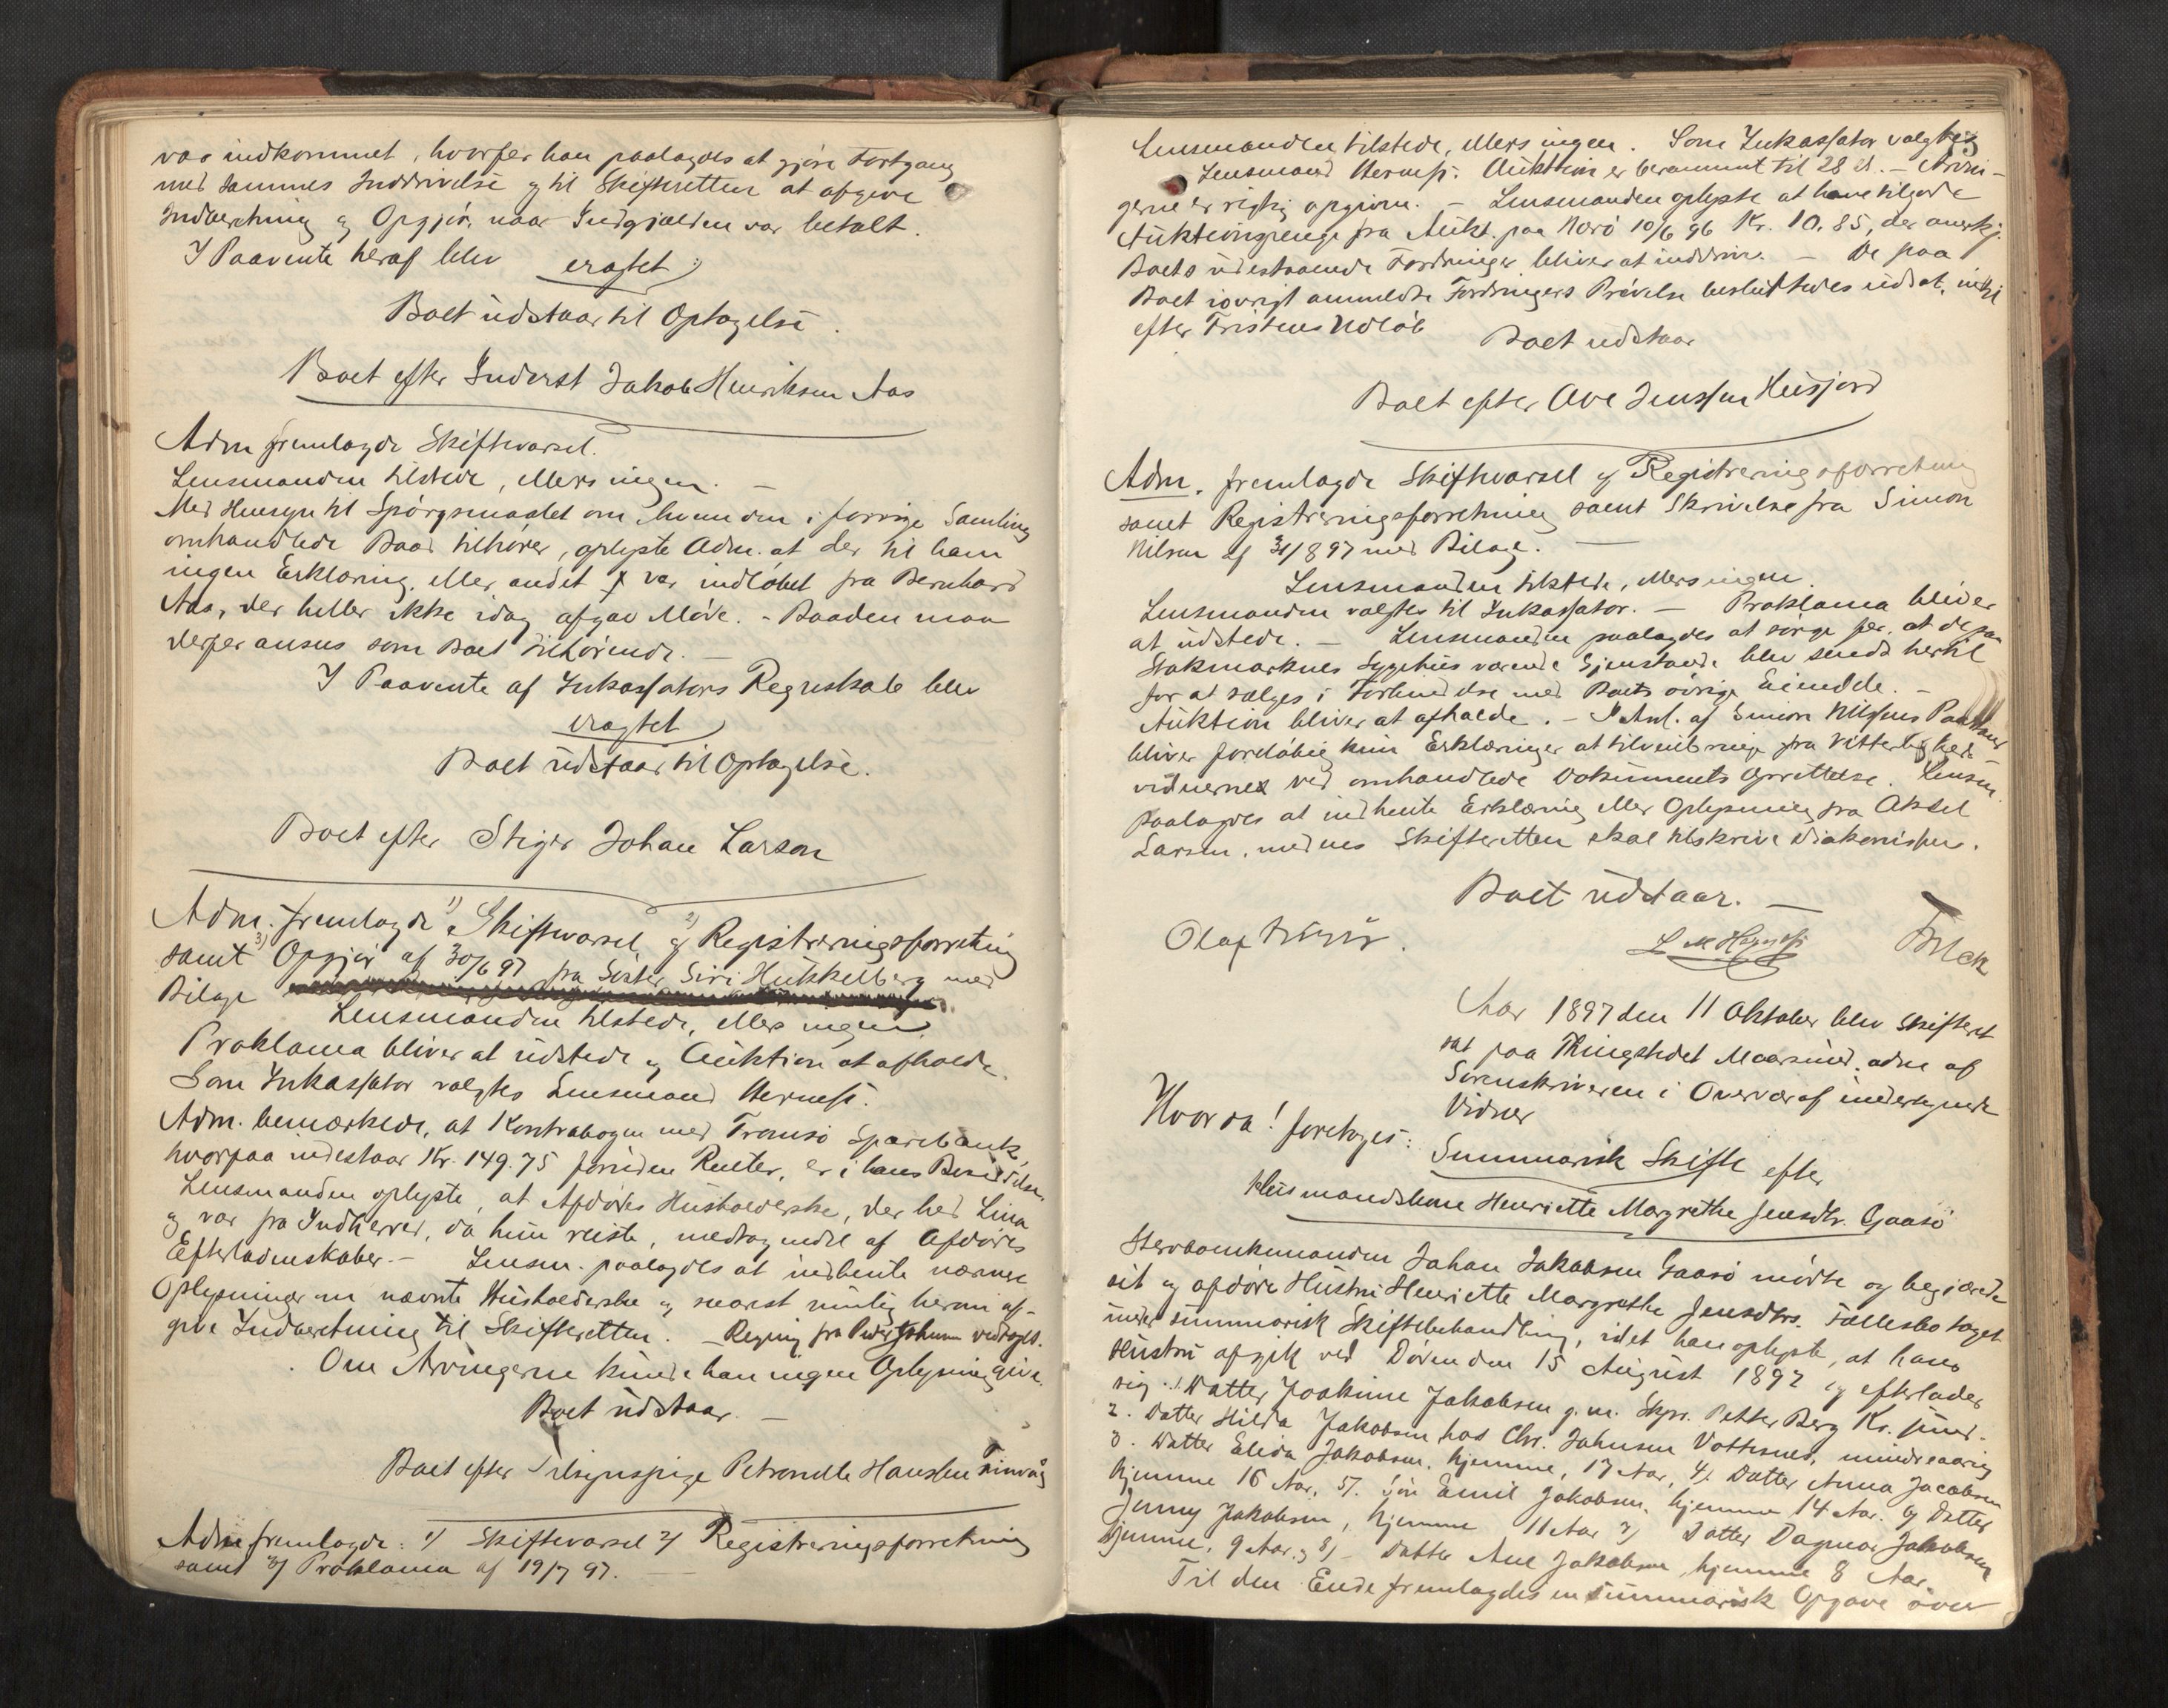 var indkommet, hvorfor han paalagdes at gjøre Fortgang
med sammes Inddrivelse og til Skifteretten at afgive
Indberetning og Opgjør, naar Indgjælden var betalt.
I Paavente heraf blev eragtet:
Boet udstaar til Optagelse.
Boet efter Inderst Jakob Henriksen Aas
Adm fremlagde Skiftevarsel.
Lensmanden tilstede, ellers ingen. –
Med Hensyn til Spørgsmaalet om, hvem den i forrige Samling
omhandlede Baad tilhører, oplyste Adm. at der til ham
ingen Erklæring eller andet var indløbet fra Bernhard
Aas, der heller ikke idag afgav Møde. - Baaden maa
derfor ansees som Boet tilhørende. –
I Paavente af Inkassators Regnskab blev
eragtet
Boet udstaar til Optagelse.
Boet efter Stiger Johan Larsen
Adm. fremlagde 1) Skiftevarsel og 2) Registreringsforretning
samt 3) Opgjør af 30/6 97 fra Søster Siri Hukkelberg med
Bilage
Lensmanden tilstede, ellers ingen.
Proklama bliver at udstede og Auktion at afholde.
Som Inkassator valgtes Lensmand Hernæs.
Adm. bemærkede, at Kontrabogen med Tromsø Sparebank,
hvorpaa indestaar Kr. 149.75 foruden Renter, er i hans Besiddelse.
Lensmanden oplyste, at Afdødes Husholderske, der hed Lina
og var fra Indherred, da hun reiste, medtog endel af Afdødes
Efterladenskaber. – Lensm. paalagdes at indhente nærmere
Oplysninger om nævnte Husholderske og snarest mulig herom af-
give Indberetning til Skifteretten. – Regning fra Peder Johnsen vedtoges.
Om Arvingerne kunde han ingen Oplysning give.
Boet udstaar. –
Boet efter Tilsynspige Petronelle Hanssen Finvåg
Adm fremlagde: 1) Skiftevarsel 2) Registreringsforretning
samt 3) Proklama af 19/7 97. –
Lensmanden tilstede, ellers ingen. Som Inkassator valgtes
Lensmand Hernæs. Auktion er berammet til 28 ds. – Arvin-
gerne er rigtig opgivne. – Lensmanden oplyste at have tilgode
Auktionspenge fra Aukt. paa Norø 10/6 96 Kr. 10.85, der anerkj.
Boets udestaaende Fordringer bliver at inddrive. – De paa
Boet iøvrigt anmeldte Fordringers Prøvelse besluttedes udsat indtil
efter Fristens Udløb
Boet udstaar
Boet efter Ove Jenssen Husjord
Adm. fremlagde Skiftevarsel og Registreringsforretning
samt Registreringsforretning samt Skrivelse fra Simon
Nilsen af 31/8 97 med Bilage. –
Lensmanden tilstede, ellers ingen.
Lensmanden valgtes til Inkassator. – Proklama bliver
at udstede. – Lensmanden paalagdes at sørge for, at de paa
Stokmarknes Sygehus værende Gjenstande blev sendt hertil
for at sælges i Forbindelse med Boets øvrige Eiendele. –
Auktion bliver at afholde. – I Anl. af Simon Nilsens Paastand
bliver foreløbig kun Erklæringer at tilveiebringe fra Vitterligheds-
vidnerne ved omhandlede Dokuments Oprettelse. Lensm.
paalagdes at indhente Erklæring eller Oplysning fra Aksel
Larsen, medens Skifteretten skal tilskrive Diakonissen.
Boet udstaar. –
Olaf
Aar 1897 den 11 Oktober blev Skifteret
sat paa Thingstedet Maarsund adm af
Sorenskriveren i Overvær af undertegnede
Vidner
Hvor da! foretoges:
Summarisk Skifte efter
Husmandskone Henriette Margrethe Jensdtr. Gaasø
Stervboenkemanden Johan Jakobsen Gaasø mødte og begjærede
sit og afdøde Hustru Henriette Margrethe Jensdtrs. Fællesbo taget
under summarisk Skiftebehandling, idet han oplyste, at hans
Hustru afgik ved Døden den 15 August 1897 og efterlader
sig 1. Datter Joakime Jakobsen g. m. Skpr. Petter Berg Kr. sund.
2. Datter Hilda Jakobsen hos Chr. Johnsen Vottesnes, mindreaarig
3. Datter Elida Jakobsen, hjemme, 17 Aar, 4) Datter Anna Jacobsen
hjemme 16 Aar. 5). Søn Emil Jakobsen hjemme 14 Aar. 6) Datter
Jenny Jakobsen, hjemme 11 Aar 7) Datter Dagmar Jakobsen
hjemme, 9 Aar. og 8) – Datter Ane Jakobsen hjemme 8 Aar.
Til den Ende fremlagdes en summarisk Opgave over